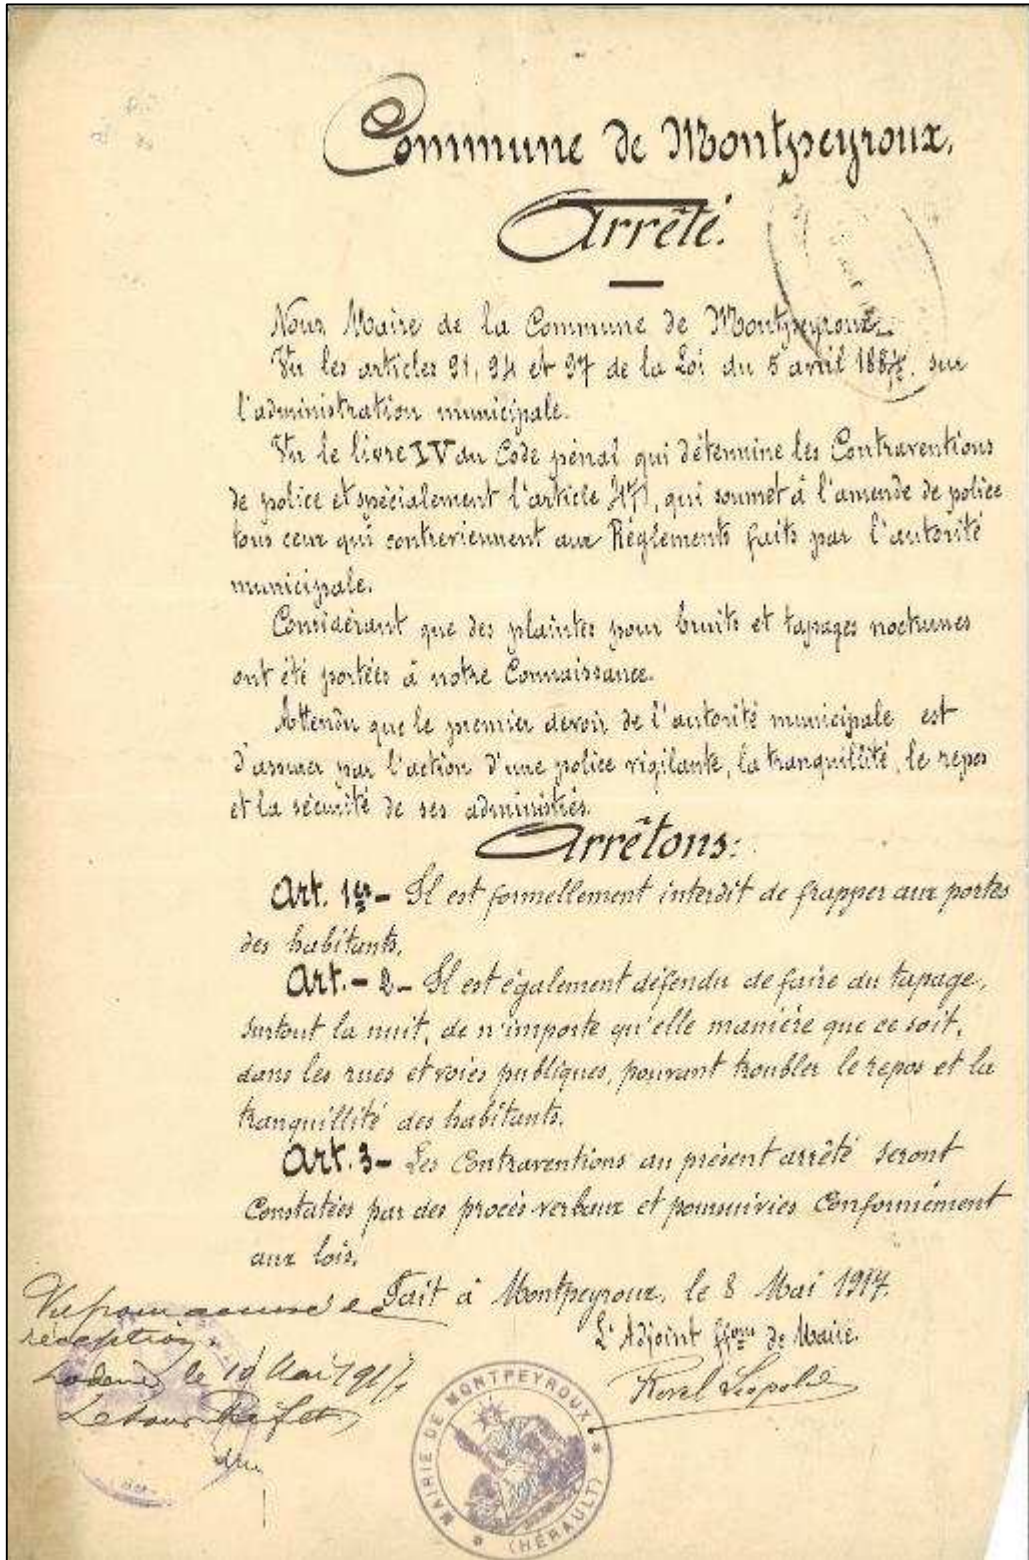 Commune de Montpeyroux.
Arrêté.
Nous Maire de la Commune de Montpeyroux.
Vu les articles 91, 94 et 97 de la Loi du 5 avril 1884, sur
l'administration municipale.
Vu le livre IV du Code pénal qui détermine les Contraventions
de police et spécialement l'article 471, qui soumet à l'amende de police
tous ceux qui contreviennent aux Règlements faits par l'autorité
municipale.
Considérant que des plaintes pour bruits et tapages nocturnes
ont été portées à notre Connaissance.
Attendu que le premier devoir de l'autorité municipale est
d'assurer par l'action d'une police vigilante, la tranquillité, le repos
et la sécurité de ses administrés.
Arrêtons:
Art. 1er - Il est formellement interdit de frapper aux portes
des habitants.
Art. - 2 - Il est également défendu de faire du tapage,
surtout la nuit, de n'importe qu'elle manière que ce soit,
dans les rues et voies publiques, pouvant troubler le repos et la
tranquillité des habitants.
Art. 3 - Les Contraventions au présent arrêté seront
Constatées par des procès-verbaux et poursuivies Conformément
aux lois.
Fait à Montpeyroux, le 8 Mai 1917.
L'Adjoint ffons de Maire
Léopold
Vu pour accusé de
réception.
Lodève, le 10 Mai 1917
Le Sous Préfet
MAIRIE DE MONTPEYROUX
(HÉRAULT)